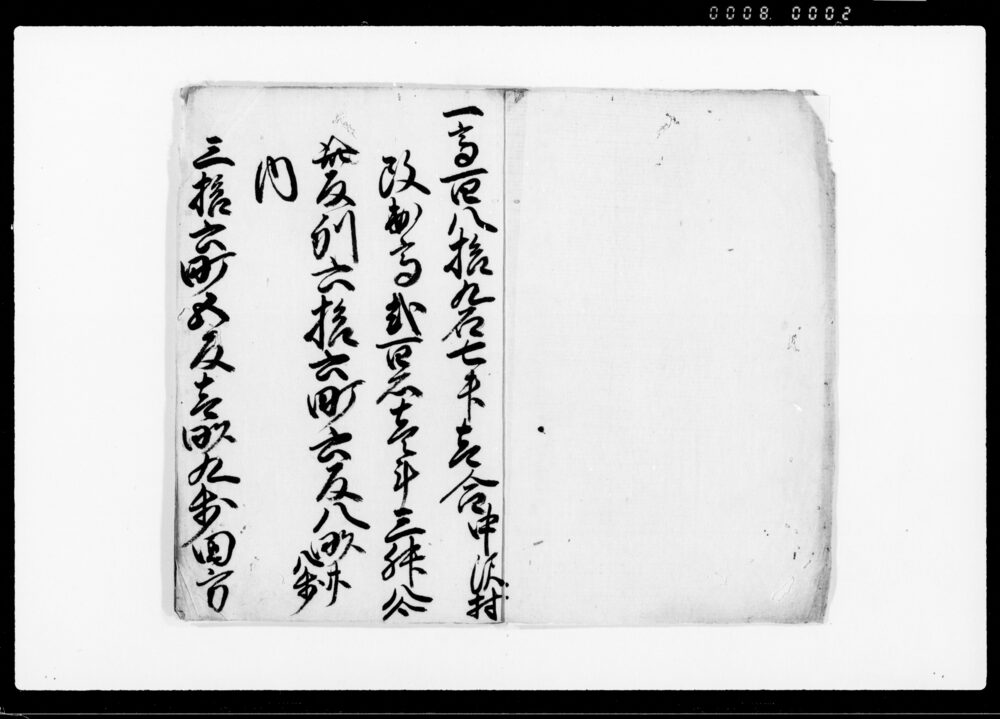 0008 0002
一高百八拾九石七斗壱合 中沢村
改出高弐百石壱斗三升八合
此反別六拾六町六反八畝廿八歩
内
三拾六町五反壱畝九歩 田方